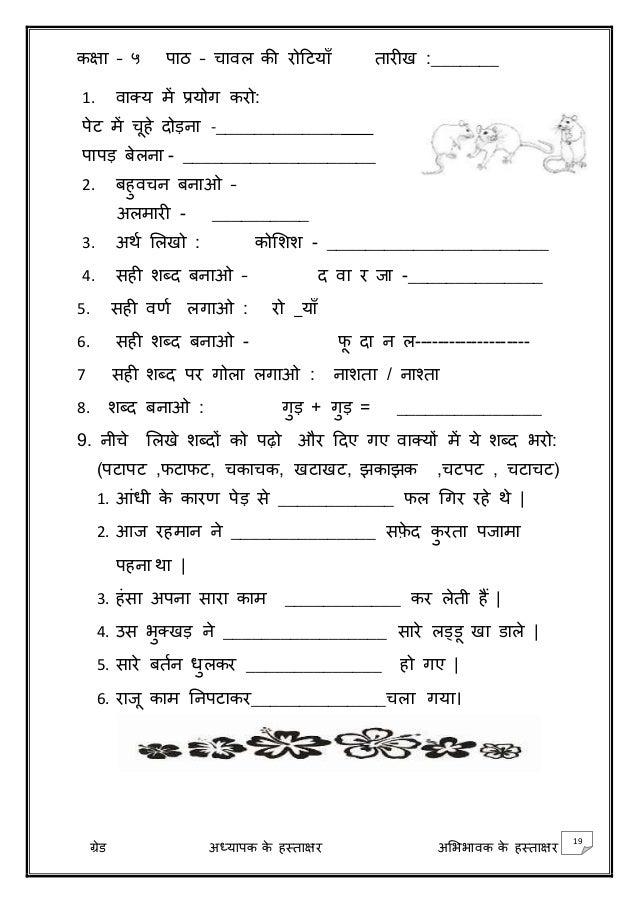 कक्षा – ५ पाठ – चावल की रोटियाँ तारीख :_______
1. वाक्य में प्रयोग करो:
पेट में चूहे दोड़ना -________________
पापड़ बेलना - ____________________
2. बहुवचन बनाओ –
अलमारी - __________
3. अर्थ लिखो : कोशिश - _______________________
4. सही शब्द बनाओ – द वा र जा -______________
5. सही वर्ण लगाओ : रो _याँ
6. सही शब्द बनाओ - फू दा न ल---------------------
7 सही शब्द पर गोला लगाओ : नाशता / नाश्ता
8. शब्द बनाओ : गुड़ + गुड़ = _______________
9. नीचे लिखे शब्दों को पढ़ो और दिए गए वाक्यों में ये शब्द भरो:
(पटापट ,फटाफट, चकाचक, खटाखट, झकाझक ,चटपट , चटाचट)
1. आंधी के कारण पेड़ से ____________ फल गिर रहे थे |
2. आज रहमान ने _______________ सफ़ेद कुरता पजामा
पहना था |
3. हंसा अपना सारा काम ____________ कर लेती हैं |
4. उस भुक्खड़ ने _________________ सारे लड्डू खा डाले |
5. सारे बर्तन धुलकर ______________ हो गए |
6. राजू काम निपटाकर______________चला गया।
19
ग्रेड अध्यापक के हस्ताक्षर अभिभावक के हस्ताक्षर